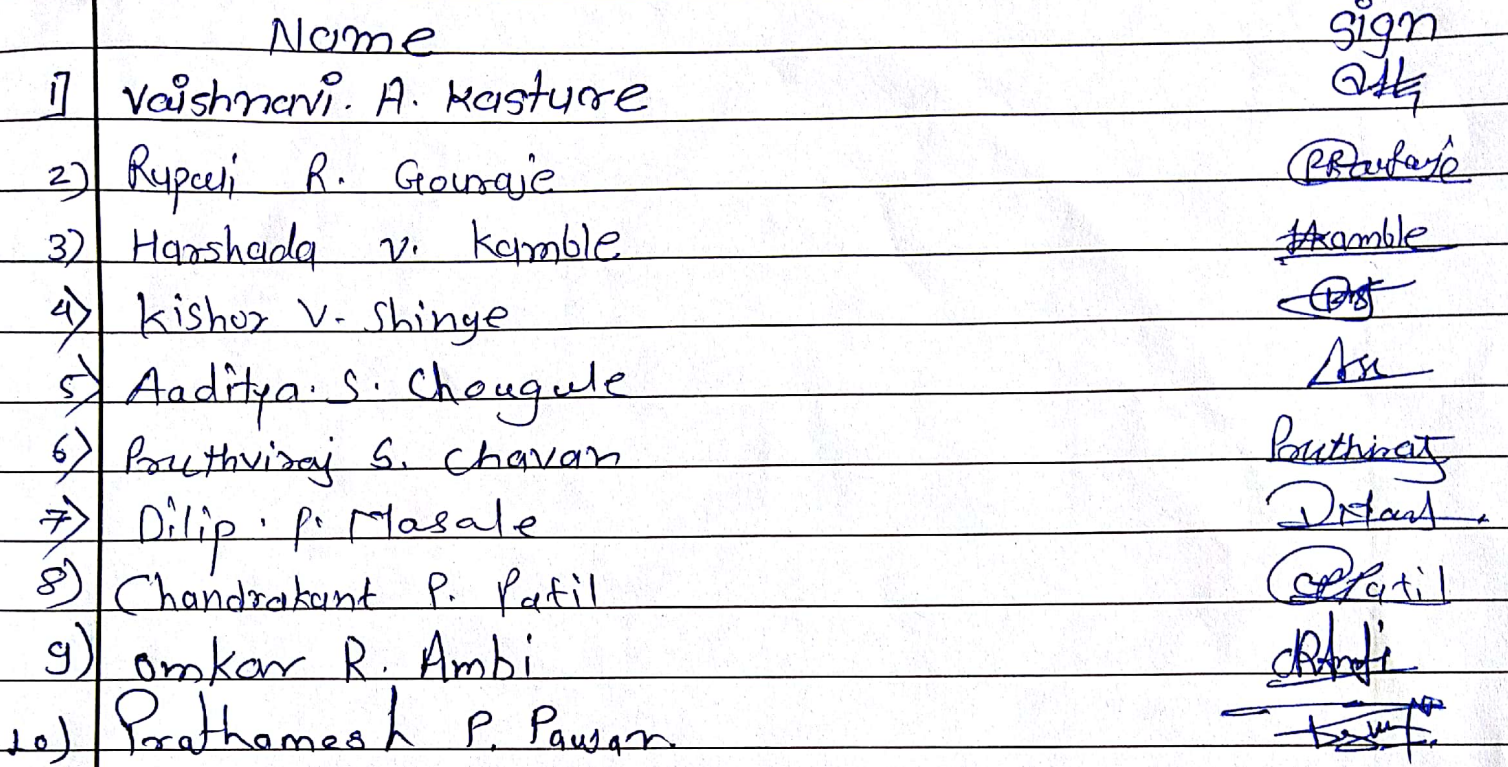 Name sign
1) Vaishnavi. A. Kasture
2) Rupali R. Gouraje
3) Harshada V. Kamble Hkamble
4) Kishor V. Shinge
5) Aaditya. S. Chougule
6) Pruthviraj S. Chavan Pruthiraj
7) Dilip. P. Masale
8) Chandrakant P. Patil CPPatil
9) omkar R. Ambi
10) Prathamesh P. Pawar